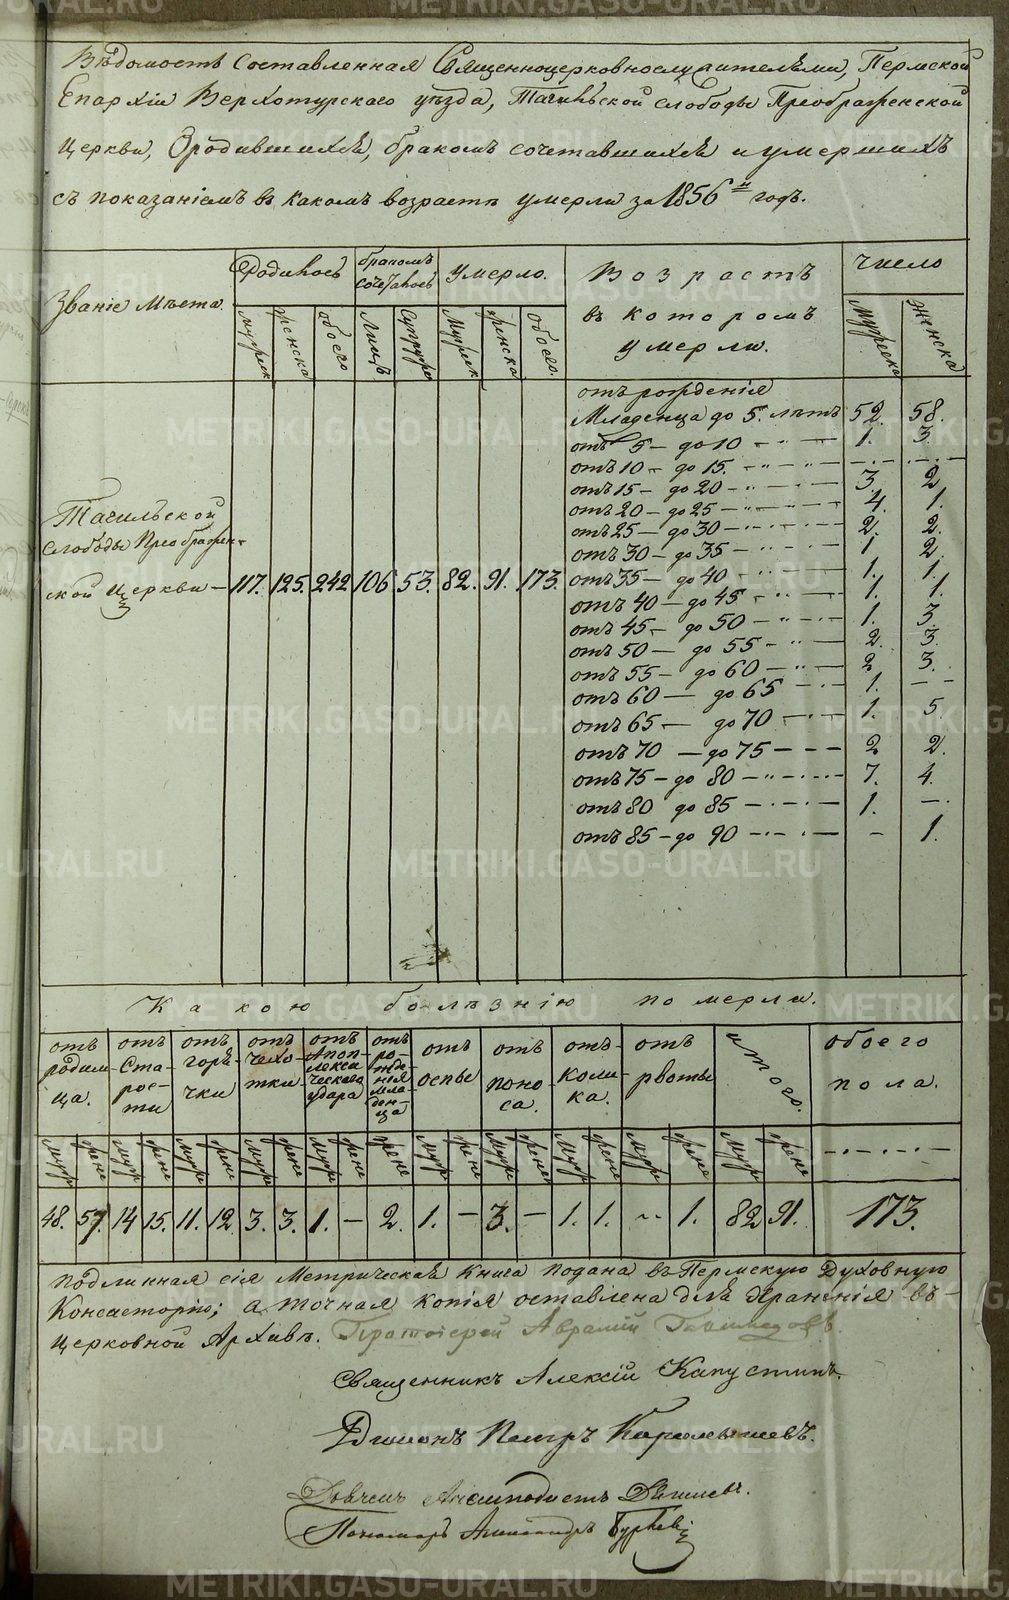 Вѣдомость составленная Священноцерковнослужителями, Пермской
Епархіи Верхотурскаго уѣзда, Тагильской слободы Преображенской
церкви, О родившихся, бракомъ сочетавшихся и умершихъ
съ показаніемъ въ какомъ возрастѣ умерли за 1856й годъ.
Званіе Мѣста.
Родилось
бракомъ сочеталось
Умерло.
Возрастъ въ которомъ умерли.
Число
мужеск
женска
обоего
Лицъ
Супруж
Мужеск
женска
обоего.
Мужеска
Женска
отъ рожденія
Младенца до 5. лѣтъ 52. 58.
отъ 5 – до 10 – 1. 3.
отъ 10 – до 15. – – –
отъ 15 – до 20 – 3. 2.
отъ 20 – до 25 – 4. 1.
отъ 25 – до 30 – 2. 2.
отъ 30 – до 35 – 1 2.
отъ 35 – до 40 – 1. 1.
отъ 40 – до 45 – 1. 1.
отъ 45 – до 50 – 1. 3.
отъ 50 – до 55 – 2. 3.
отъ 55 – до 60 – 2 3.
отъ 60 – до 65 – 1. –
отъ 65 – до 70 – 1. 5.
отъ 70 – до 75 – 2 2.
отъ 75 – до 80 – 7. 4.
отъ 80 до 85 – 1. –
отъ 85 – до 90 – – 1.
Тагильской
слободы Преображен-
ской Церкви – 117. 125. 242 106. 53. 82. 91. 173.
Какою болѣзнію померли.
отъ родим-ца.
отъ Ста-рос-ти
отъ горя-чки
отъ чехо-тки
отъ Апоп-лекси-ческаго удара
отъ ро-жде-нія мла-ден-ца
отъ оспы
отъ поно-са.
отъ коли-ка.
отъ рвоты
итого.
обоего пола.
муж жене муж жене муж жене муж жене муж жене жене муж жене муж жене муж жене муж жене муж жене
48. 57. 14 15. 11. 12 3. 3. 1. – 2. 1. – 3. – 1. 1. – 1. 82 91. 173.
Подлинная сія Метрическая Книга подана въ Пермскую Духовную
Консисторію; а точная копія оставлена для храненія въ-
церковной Архивѣ. Протоіерей Авраамій
Священникъ Алексій Капустинъ.
Діаконъ Петръ
Дьячекъ
Пономарь Александръ
METRIKI.GASO-URAL.RU